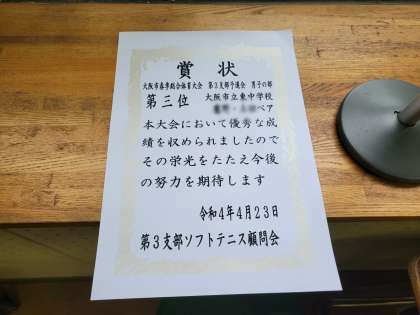 賞状
大阪市春季総合体育大会 第3支部予選会 男子の部
第三位 大阪市立東中学校
ペア
本大会において優秀な成
績を収められましたので
その栄光をたたえ今後
の努力を期待します
令和4年4月23日
第3支部ソフトテニス顧問会